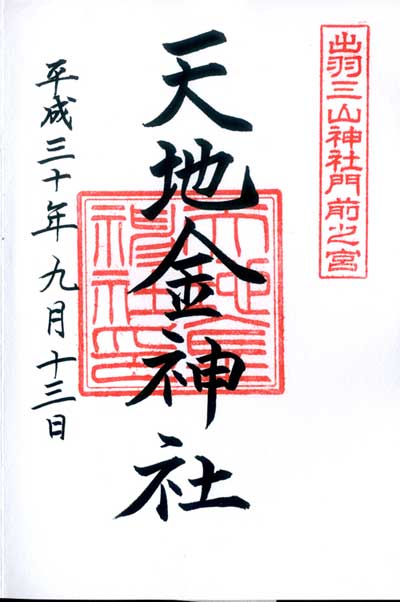 出羽三山神社門前之宮
天地金神社
天地金神社印
平成三十年九月十三日